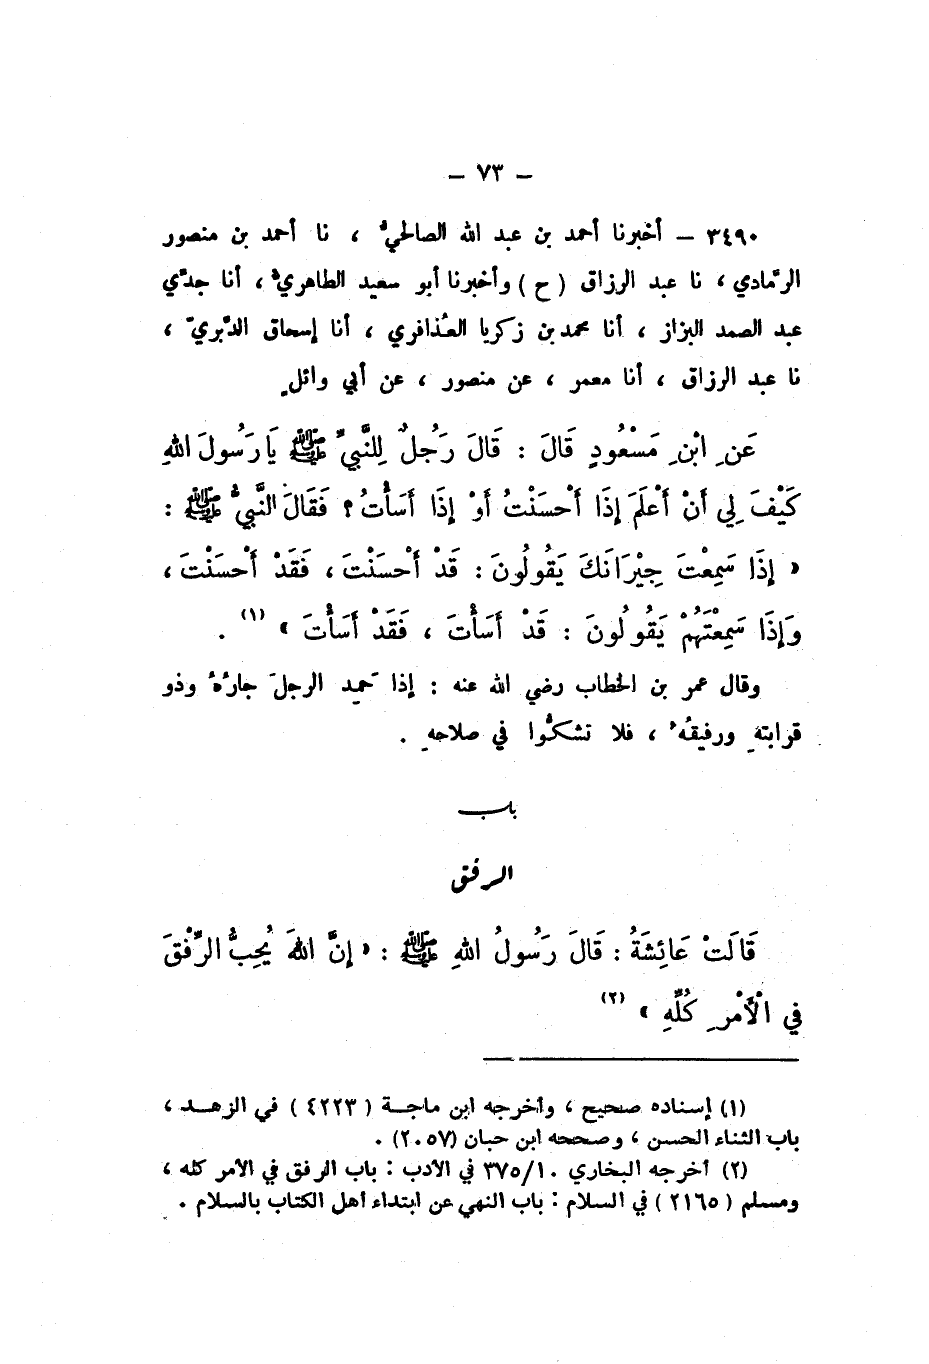 – ٧٣ –
٣٤٩٠ – أخبرنا أحمد بن عبد الله الصالحيُّ ، نا أحمد بن منصور
الرَّمادي ، نا عبد الرزاق ( ح ) وأخبرنا أبو سعيد الطاهريُّ ، أنا جدّي
عبد الصمد البزاز ، أنا محمد بن زكريا العُذافري ، أنا إسحاق الدَّبريّ ،
نا عبد الرزاق ، أنا معمر ، عن منصور ، عن أبي وائلٍ
عَنِ ابْنِ مَسْعُودٍ قَالَ : قَالَ رَجُلٌ لِلنَّبِيِّ ﷺ يَا رَسُولَ اللهِ
كَيْفَ لِي أَنْ أَعْلَمَ إِذَا أَحْسَنْتُ أَوْ إِذَا أَسَأْتُ ؟ فَقَالَ النَّبِيُّ ﷺ :
« إِذَا سَمِعْتَ جِيْرَانَكَ يَقُولُونَ : قَدْ أَحْسَنْتَ ، فَقَدْ أَحْسَنْتَ ،
وَإِذَا سَمِعْتَهُمْ يَقُولُونَ : قَدْ أَسَأْتَ ، فَقَدْ أَسَأْتَ » (١) .
وقال عمر بن الخطاب رضي الله عنه : إذا حَمِد الرجلَ جارُهُ وذو
قرابتهِ ورفيقُهُ ، فلا تشكُّوا في صلاحهِ .
باب
الرفق
قَالَتْ عَائِشَةُ : قَالَ رَسُولُ اللهِ ﷺ : « إِنَّ اللهَ يُحِبُّ الرِّفْقَ
فِي الْأَمْرِ كُلِّهِ » (٢)
(١) إسناده صحيح ، وأخرجه ابن ماجة ( ٤٢٢٣ ) في الزهد ،
باب الثناء الحسن ، وصححه ابن حبان (٢٠٥٧) .
(٢) أخرجه البخاري ٣٧٥/١٠ في الأدب : باب الرفق في الأمر كله ،
ومسلم ( ٢١٦٥ ) في السلام : باب النهي عن ابتداء أهل الكتاب بالسلام .